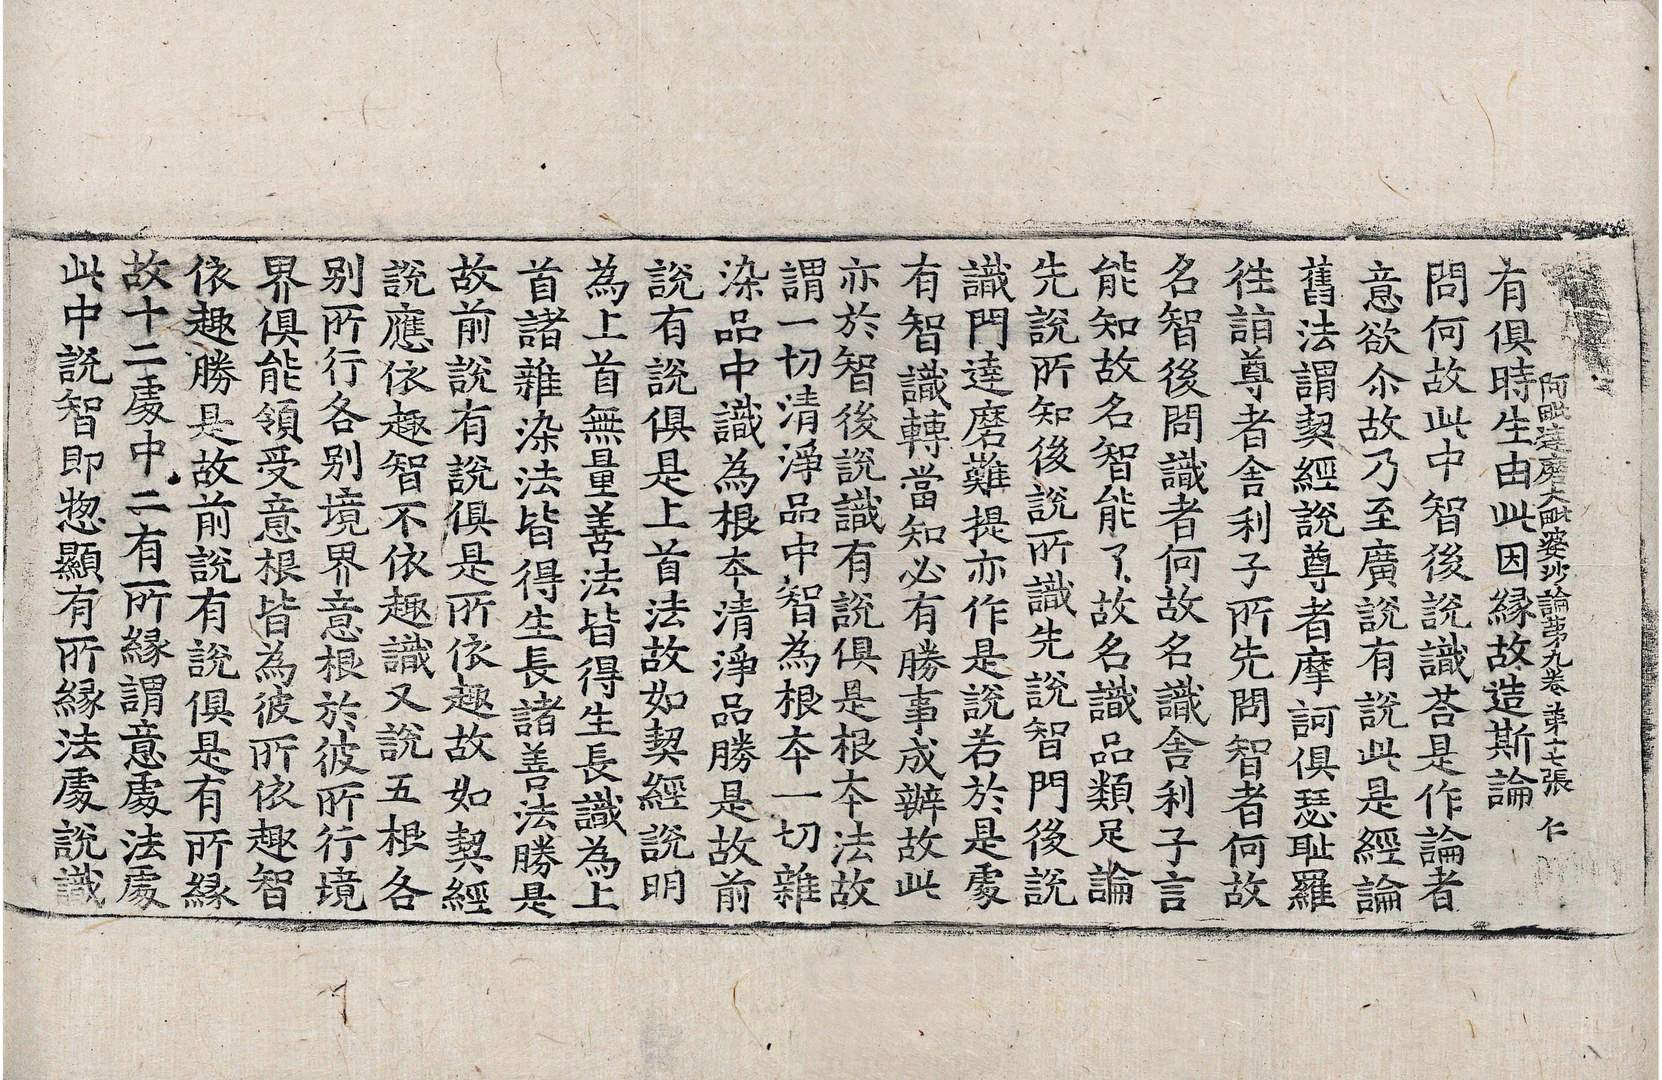 阿毗達磨大毗婆沙論第九卷 第十七張 仁
有俱時生由此因緣故造斯論
問何故此中智後說識荅是作論者
意欲尒故乃至廣說有說此是經論
舊法謂契經說尊者摩訶俱瑟耻羅
徃詣尊者舍利子所先問智者何故
名智後問識者何故名識舍利子言
能知故名智能了故名識品類足論
先說所知後說所識先說智門後說
識門達磨難提亦作是說若於是處
有智識轉當知必有勝事成辦故此
亦於智後說識有說俱是根本法故
謂一切清淨品中智為根夲一切雜
染品中識為根夲清淨品勝是故前
說有說俱是上首法故如契經說明
為上首無量善法皆得生長識為上
首諸雜染法皆得生長諸善法勝是
故前說有說俱是所依趣故如契經
說應依趣智不依趣識又說五根各
别所行各别境界意根於彼所行境
界俱能領受意根皆為彼所依趣智
依趣勝是故前說有說俱是有所緣
故十二處中二有所緣謂意處法處
此中說智即惣顯有所緣法處說識